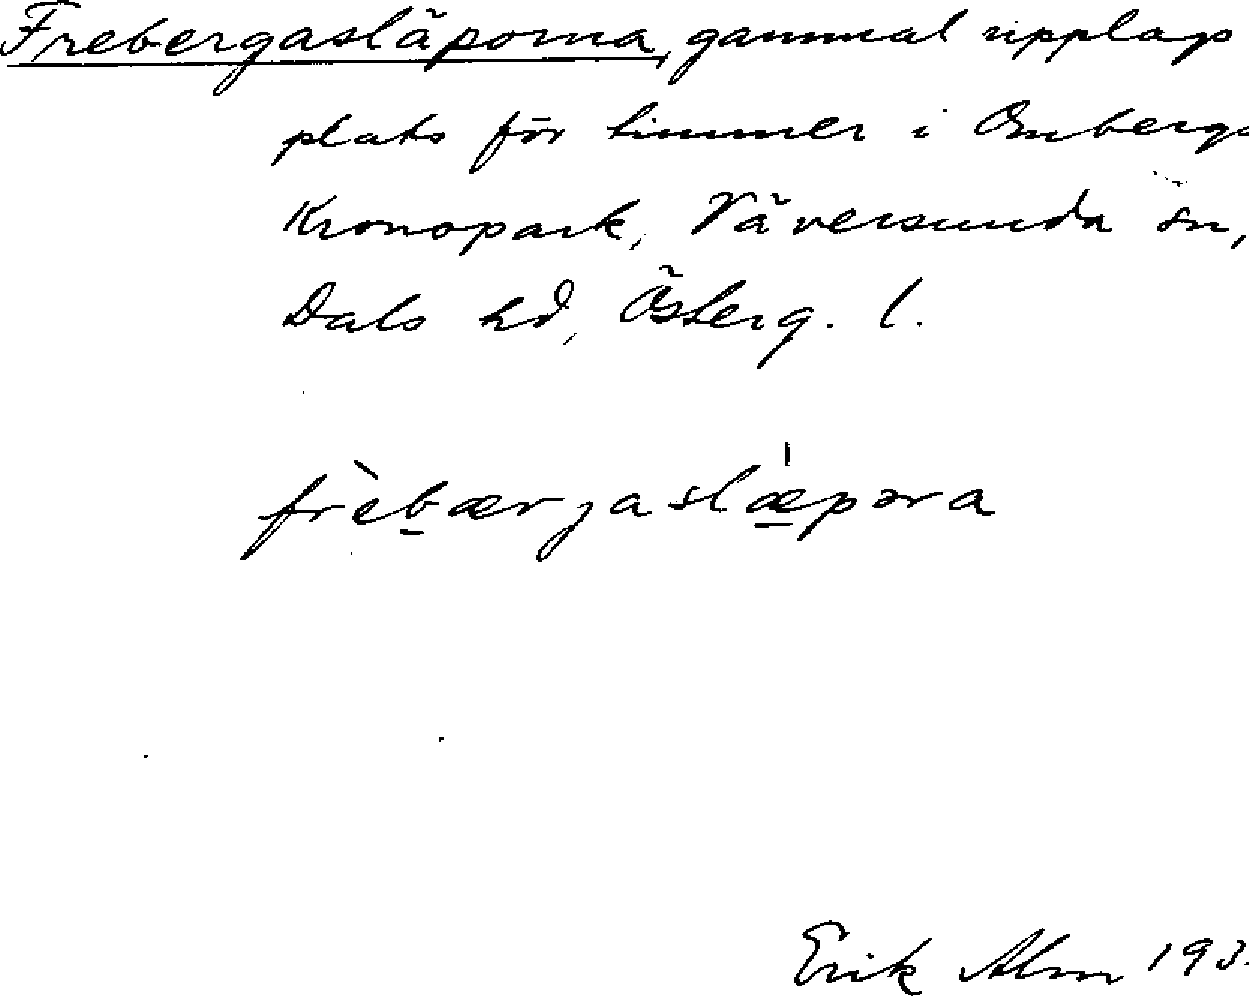 Frebergasläporna, gammal upplags
plats för timmer i Ombergs
Kronopark, Väversunda sn,
Dals hd, Österg. l.
frèbærgaslæpəra
Erik Alm 193